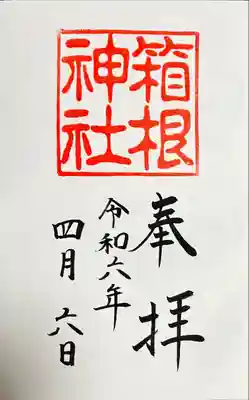 箱根
神社
奉拝
令和六年
四月六日